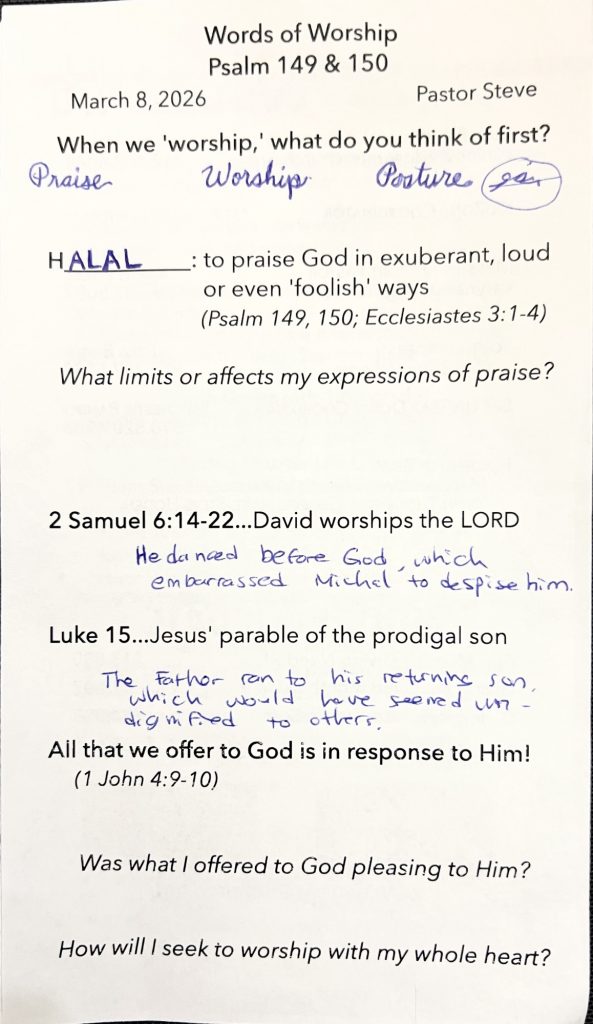 Words of Worship
Psalm 149 & 150
March 8, 2026 Pastor Steve
When we 'worship,' what do you think of first?
Praise Worship Posture
HALAL: to praise God in exuberant, loud
or even 'foolish' ways
(Psalm 149, 150; Ecclesiastes 3:1-4)
What limits or affects my expressions of praise?
2 Samuel 6:14-22...David worships the LORD
He danced before God, which
embarrassed Michel to despise him.
Luke 15...Jesus' parable of the prodigal son
The Father ran to his returning son,
which would have seemed un-
dignified to others.
All that we offer to God is in response to Him!
(1 John 4:9-10)
Was what I offered to God pleasing to Him?
How will I seek to worship with my whole heart?